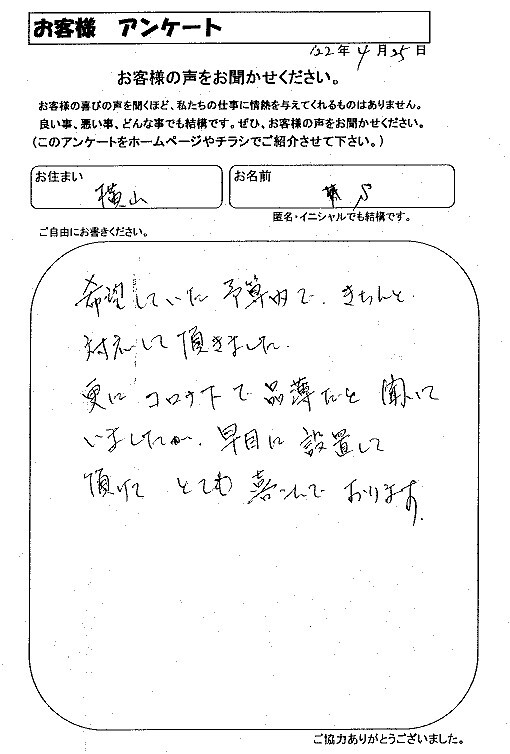 お客様 アンケート
'22年4月25日
お客様の声をお聞かせください。
お客様の喜びの声を聞くほど、私たちの仕事に情熱を与えてくれるものはありません。
良い事、悪い事、どんな事でも結構です。ぜひ、お客様の声をお聞かせください。
(このアンケートをホームページやチラシでご紹介させて下さい。)
お住まい 横山
お名前 S
匿名・イニシャルでも結構です。
ご自由にお書きください。
希望していた予算内で、きちんと
対応して頂きました。
更にコロナ下で品薄だと聞いて
いましたが、早目に設置して
頂けてとても喜こんでおります。
ご協力ありがとうございました。